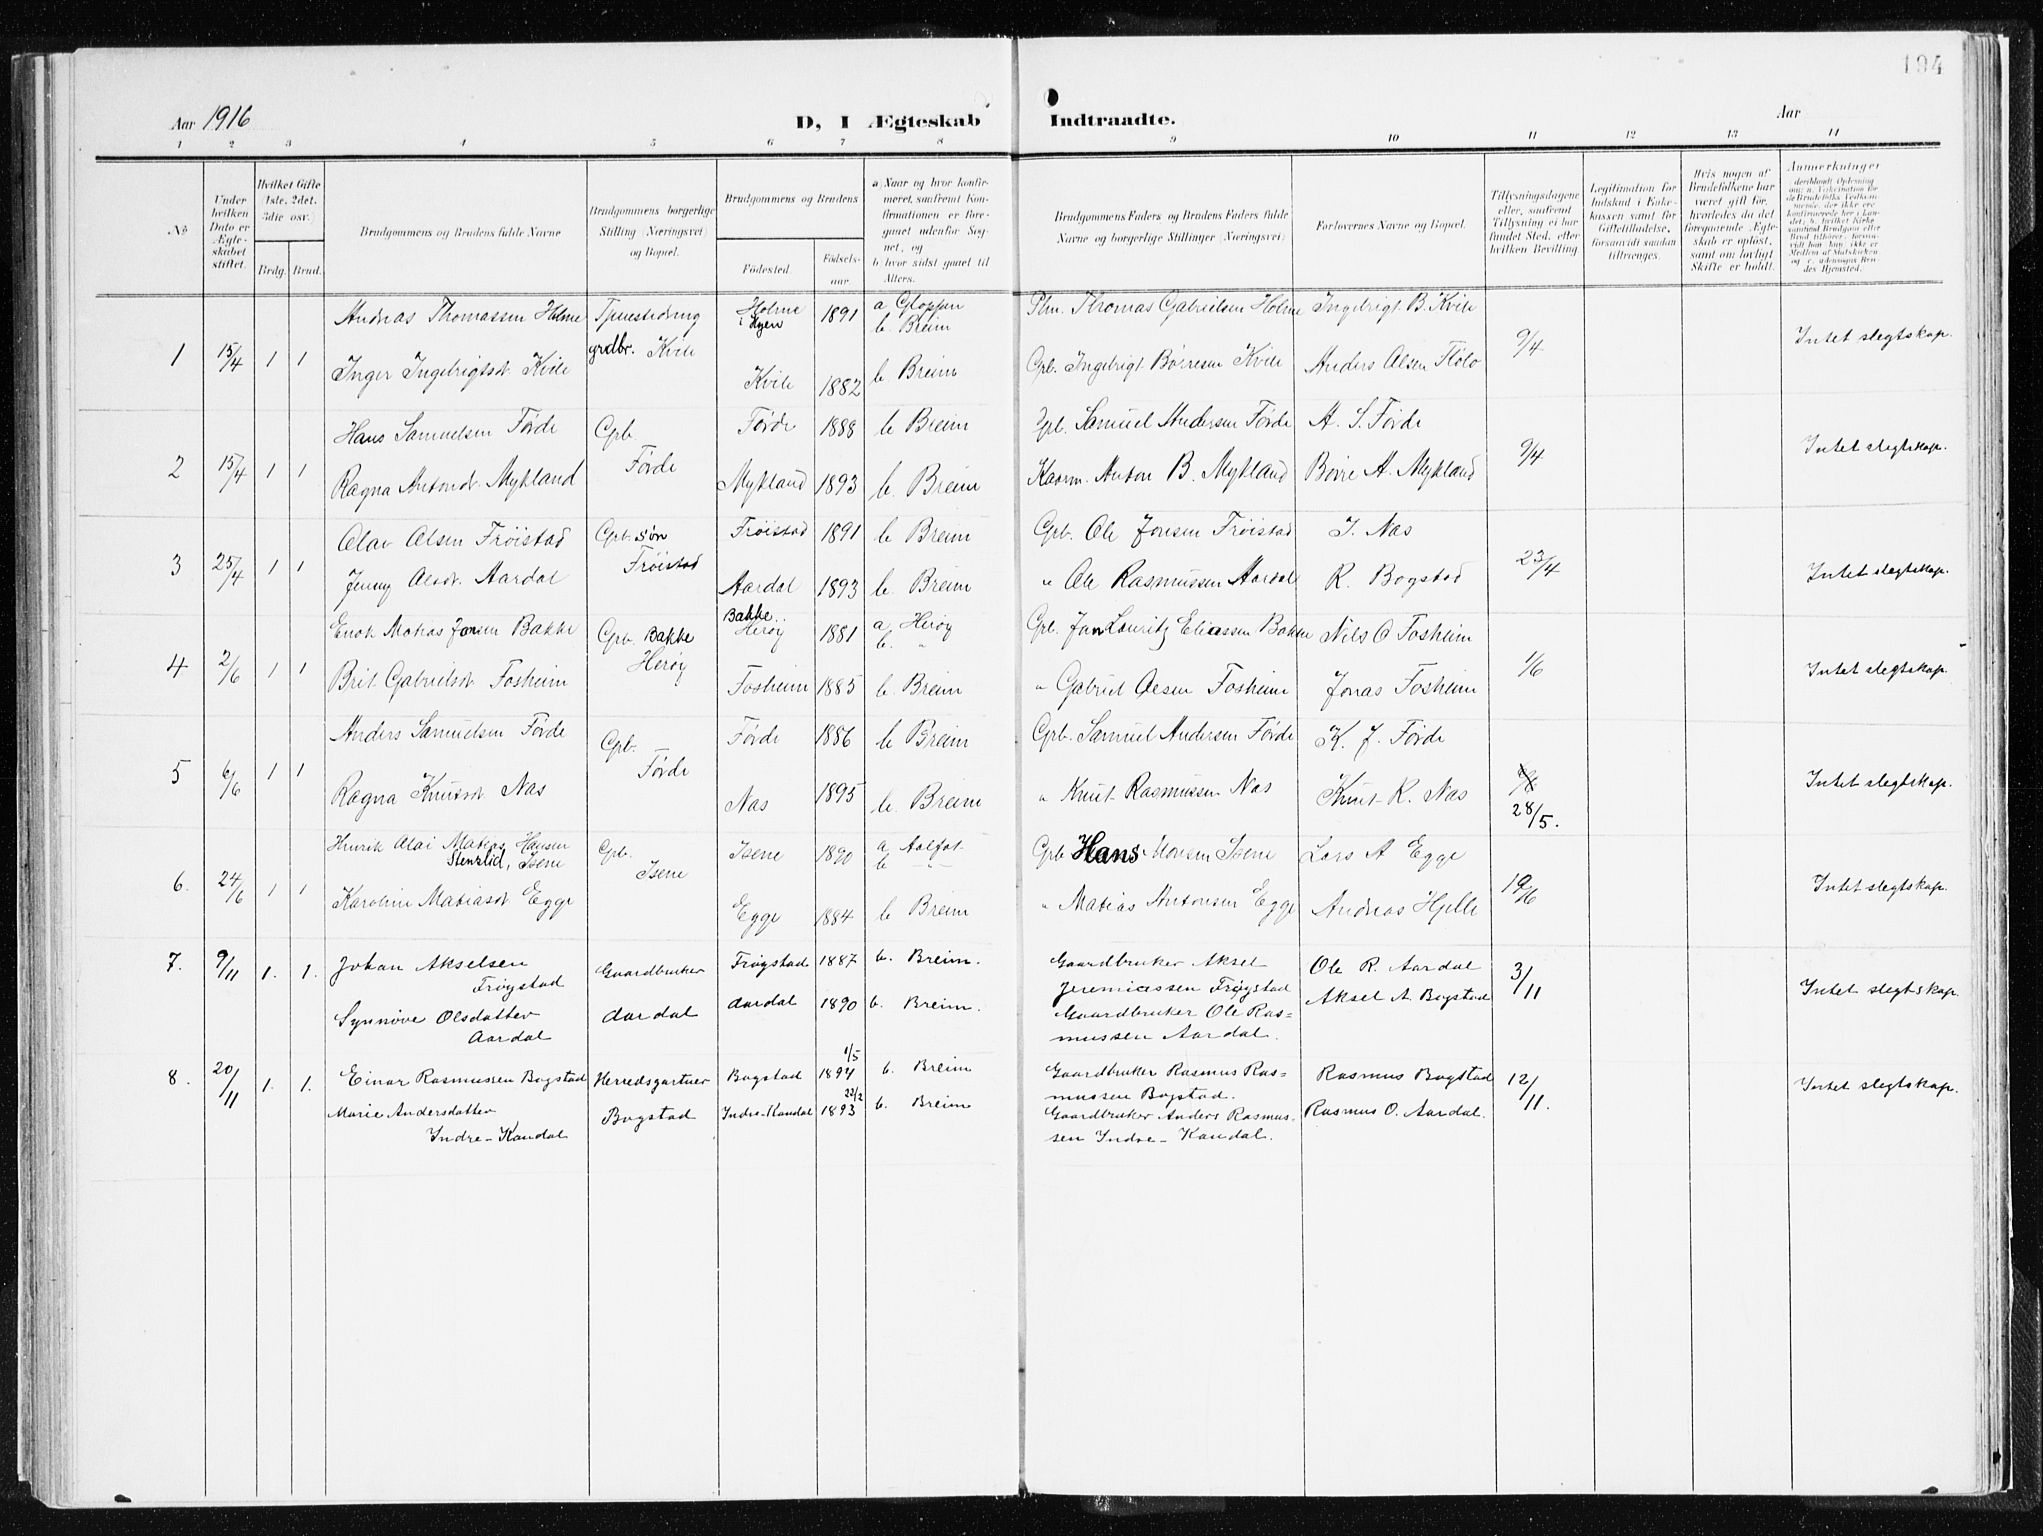 194
Aar 1916
D, I Ægteskab Indtraadte.
Aar
1 2 3 4 5 6 7 8 9 10 11 12 13 14
No
Under hvilken Dato er Ægteskabet stiftet.
Hvilket Gifte (1ste, 2det, 3die osv.)
Brdg. Brud.
Brudgommens og Brudens fulde Navne
Brudgommens borgerlige Stilling (Næringsvei) og Bopæl.
Brudgommens og Brudens
Fødested.
Fødselsaar
a) Naar og hvor konfirmeret, saafremt Konfirmationen er foregaaet udenfor Sognet, og
b hvor sidst gaaet til Alters.
Brudgommens Faders og Brudens Faders fulde Navne og borgerlige Stillinger (Næringsvei)
Forlovernes Navne og Bopæl.
Tillysningsdagene eller, saafremt Tillysning ei har fundet Sted, efter hvilken Bevilling
Legitimation for Indskud i Enkekassen samt for Giftetilladelse, forsaavidt saadan tiltrænges.
Hvis nogen af Brudefolkene har været gift før, hvorledes da det foregaaende Ægteskab er opløst, samt om lovligt Skifte er holdt.
Anmerkninger
1 15/4 1 1
Andreas Thomassen Holme
Tjenestedreng
Holme i Hyen
1891
a Gloppen
b. Breim
Plm. Thomas Gabrielsen Holme
Ingebrigt B. Kvile
9/4
Intet slegtskap.
Inger Ingebrigtsdt. Kvile
grdbr. Kvile
Kvile
1882
b Breim
Grb. Ingebrigt Børresen Kvile
Anders Olsen Flølo
2 15/4 1 1
Hans Samuelsen Førde
Grb. Førde
Førde
1888
b Breim
Grb. Samuel Andersen Førde
A. S. Førde
9/4
Intet slegtskap.
Ragna Antondt. Mykland
Mykland
1893
b. Breim
Kaarm. Anton B. Mykland
Børre A. Mykland
3 25/4 1 1
Olav Olsen Frøistad
Grb. søn Frøistad
Frøistad
1891
b Breim
Grb. Ole Jonsen Frøistad
J. Nas
23/4
Intet slegtskap.
Jenny Olsdt. Aardal
Aardal
1893
b. Breim
" Ole Rasmussen Aardal
R. Bogstad
4 2/6 1 1
Enok Matias Jonsen Bakke
Grb. Bakke Herøy
Bakke Herøy
1881
a Herøy
b. "
Grb. Jon Lauritz Eliassen Bakke
Nils O Fosheim
1/6
Intet slegtskap.
Brit Gabrielsdt Fosheim
Fosheim
1885
b. Breim
" Gabriel Olsen Fosheim
Jonas Fosheim
5 6/6 1 1
Anders Samuelsen Førde
Grb. Førde
Førde
1886
b Breim
Grb. Samuel Andersen Førde
K. J. Førde
28/5.
Intet slegtskap.
Ragna Knutsdt. Nas
Nas
1895
b. Breim
" Knut Rasmussen Nas
Knut R. Nas
6. 24/6 1 1
Henrik Olai Matias Hansen
Stenslid, Isene
Grb. Isene
Isene
1890
a Aalfot
b "
Grb Hans Monsen Isene
Lars A Egge
19/6
Intet slegtskap.
Karoline Matiasdt Egge
Egge
1884
b Breim
" Matias Antonsen Egge
Andreas Hjelle
7. 9/11 1. 1.
Johan Akselsen
Frøystad
Gaardbruker
Frøystad
1887
b. Breim.
Gaardbruker Aksel
Jeremiassen Frøystad
Ole R. Aardal
3/11
Intet slegtskap.
Synnøve Olsdatter
Aardal
Aardal
Aardal
1890
b. Breim.
Gaardbruker Ole Rasmussen Aardal.
Aksel A. Bogstad
8. 20/11 1. 1.
Einar Rasmussen Bogstad
Herredsgartner
Bogstad
1/5 1894
b. Breim
Gaardbruker Rasmus Rasmussen Bogstad.
Rasmus Bogstad
12/11.
Intet slegtskap.
Marie Andersdatter
Indre-Kandal
Bogstad
Indre-Kandal
22/2 1893
b. Breim
Gaardbruker Anders Rasmussen Indre-Kandal.
Rasmus O. Aardal.